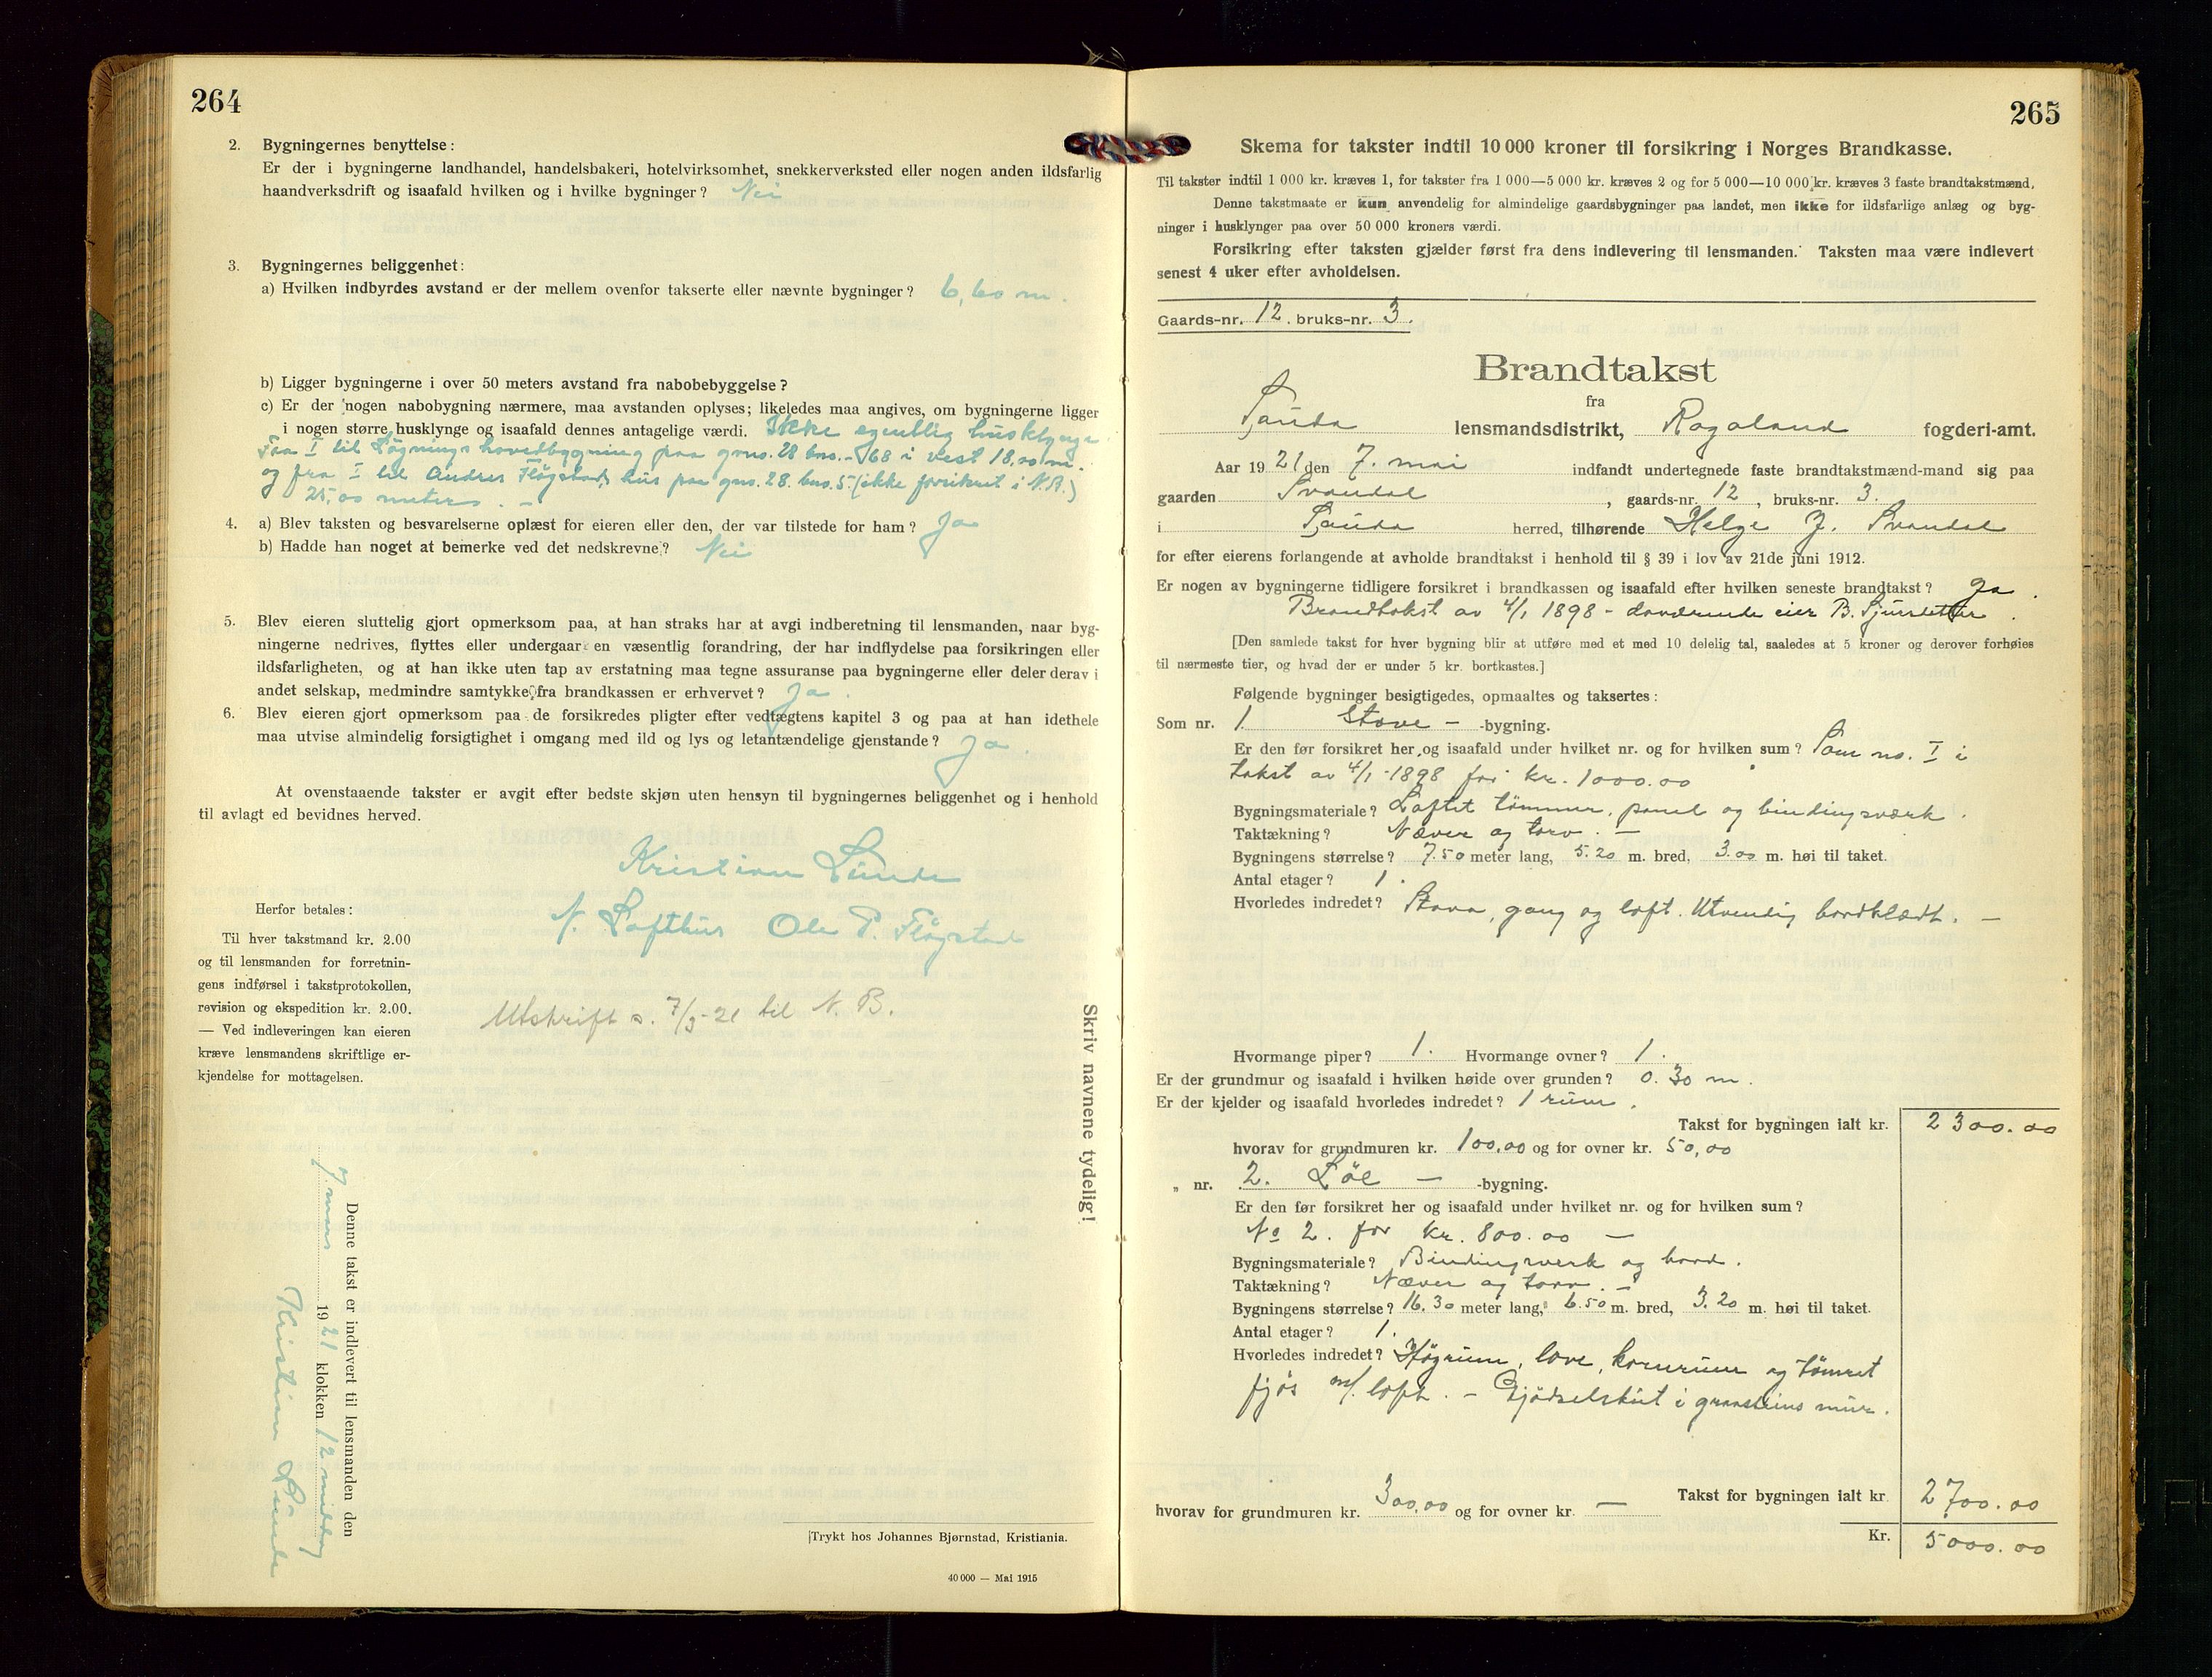 264
2. Bygningernes benyttelse:
Er der i bygningerne landhandel, handelsbakeri, hotelvirksomhet, snekkerverksted eller nogen anden ildsfarlig
haandverksdrift og isaafald hvilken og i hvilke bygninger? Nei
3. Bygningernes beliggenhet:
a) Hvilken indbyrdes avstand er der mellem ovenfor takserte eller nævnte bygninger? 6,60 m.
b) Ligger bygningerne i over 50 meters avstand fra nabobebyggelse?
c) Er der nogen nabobygning nærmere, maa avstanden oplyses; likeledes maa angives, om bygningerne ligger
i nogen større husklynge og isaafald dennes antagelige værdi. Ikke egentlig husklynge.
Fra I til Løgnings hovedbygning paa gno. 28 bno. 68 i vest 18,00 m.
og fra I til Andres Fløgstads hus paa gno. 28. bno. 5. (ikke forsikret i N.B.)
25,00 meters. –
4. a) Blev taksten og besvarelserne oplæst for eieren eller den, der var tilstede for ham? Ja
b) Hadde han noget at bemerke ved det nedskrevne? Nei
5. Blev eieren sluttelig gjort opmerksom paa, at han straks har at avgi indberetning til lensmanden, naar byg-
ningerne nedrives, flyttes eller undergaar en væsentlig forandring, der har indflydelse paa forsikringen eller
ildsfarligheten, og at han ikke uten tap av erstatning maa tegne assuranse paa bygningerne eller deler derav i
andet selskap, medmindre samtykke fra brandkassen er erhvervet? Ja.
6. Blev eieren gjort opmerksom paa de forsikredes pligter efter vedtægtens kapitel 3 og paa at han idethele
maa utvise almindelig forsigtighet i omgang med ild og lys og letantændelige gjenstande? Ja.
At ovenstaaende takster er avgit efter bedste skjøn uten hensyn til bygningernes beliggenhet og i henhold
til avlagt ed bevidnes herved.
Kristian Lunde
N. Lofthus Ole P. Fløgstad
Herfor betales:
Til hver takstmand kr. 2.00
og til lensmanden for forretnin-
gens indførsel i takstprotokollen,
revision og ekspedition kr. 2.00.
— Ved indleveringen kan eieren
kræve lensmandens skriftlige er-
kjendelse for mottagelsen.
Utskrift s. 7/3-21 til N. B.
Skriv navnene tydelig!
Denne takst er indlevert til lensmanden den
7. mars 1921 klokken 12 middag
Kristian Lunde
Trykt hos Johannes Bjørnstad, Kristiania.
40 000 — Mai 1915
265
Skema for takster indtil 10 000 kroner til forsikring i Norges Brandkasse.
Til takster indtil 1 000 kr. kræves 1, for takster fra 1 000—5 000 kr. kræves 2 og for 5 000—10 000 kr. kræves 3 faste brandtakstmænd.
Denne takstmaate er kun anvendelig for almindelige gaardsbygninger paa landet, men ikke for ildsfarlige anlæg og byg-
ninger i husklynger paa over 50 000 kroners værdi.
Forsikring efter taksten gjælder først fra dens indlevering til lensmanden. Taksten maa være indlevert
senest 4 uker efter avholdelsen.
Gaards-nr. 12. bruks-nr. 3.
Brandtakst
fra
Sauda lensmandsdistrikt, Rogaland fogderi-amt.
Aar 1921 den 7. mai indfandt undertegnede faste brandtakstmænd-mand sig paa
gaarden Svandal, gaards-nr. 12, bruks-nr. 3.
i Sauda herred, tilhørende Helge J. Svandal
for efter eierens forlangende at avholde brandtakst i henhold til § 39 i lov av 21de juni 1912.
Er nogen av bygningerne tidligere forsikret i brandkassen og isaafald efter hvilken seneste brandtakst? Ja.
Brandtakst av 4/1 1898 - daværende eier B.
[Den samlede takst for hver bygning blir at utføre med et med 10 delelig tal, saaledes at 5 kroner og derover forhøies
til nærmeste tier, og hvad der er under 5 kr. bortkastes.]
Følgende bygninger besigtigedes, opmaaltes og taksertes:
Som nr. 1. Stove – -bygning.
Er den før forsikret her og isaafald under hvilket nr. og for hvilken sum? Som no. I i
takst av 4/1-1898 for kr. 1000.00
Bygningsmateriale? Laftet tømmer, panel og bindingsværk.
Taktækning? Næver og torv. –
Bygningens størrelse? 7.50 meter lang, 5.20 m. bred, 3.00 m. høi til taket.
Antal etager? 1.
Hvorledes indredet? Stova, gang og loft. Utvendig bordklædt. –
Hvormange piper? 1. Hvormange ovner? 1.
Er der grundmur og isaafald i hvilken høide over grunden? 0.30 m.
Er der kjelder og isaafald hvorledes indredet? 1 rum.
Takst for bygningen ialt kr. 2300.00
hvorav for grundmuren kr. 100,00 og for ovner kr. 50,00
„ nr. 2. Løe – -bygning.
Er den før forsikret her og isaafald under hvilket nr. og for hvilken sum?
No 2. for kr. 800.00 –
Bygningsmateriale? Bindingsverk og bord.
Taktækning? Næver og torv. –
Bygningens størrelse? 16.30 meter lang, 6.50 m. bred, 3.20 m. høi til taket.
Antal etager? 1.
Hvorledes indredet? Høgrum, love, kornrum og tømret
fjøs m/ loft. – Gjødselskut i graasteins mur.
Takst for bygningen ialt kr. 2700.00
hvorav for grundmuren kr. 300,00 og for ovner kr. —
Kr. 5000.00